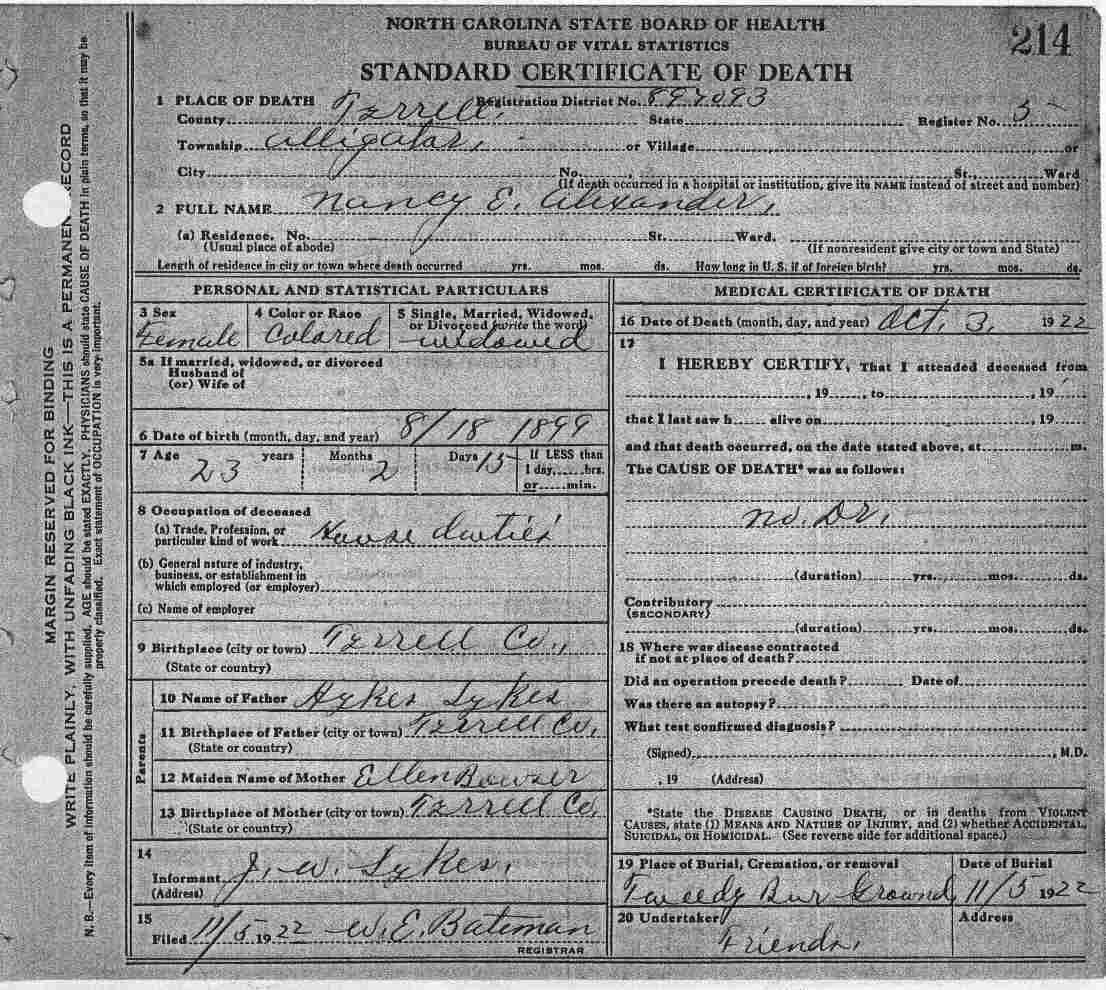 NORTH CAROLINA STATE BOARD OF HEALTH
BUREAU OF VITAL STATISTICS
214
STANDARD CERTIFICATE OF DEATH
1 PLACE OF DEATH Registration District No. 897093
County Tyrrell, State Register No. 5
Township Alligator, or Village or
City No. St., Ward
(If death occurred in a hospital or institution, give its NAME instead of street and number)
2 FULL NAME Nancy E. Alexander,
(a) Residence. No. St. Ward.
(Usual place of abode) (If nonresident give city or town and State)
Length of residence in city or town where death occurred yrs. mos. ds. How long in U.S. if of foreign birth? yrs. mos. ds.
PERSONAL AND STATISTICAL PARTICULARS
3 Sex 4 Color or Race 5 Single, Married, Widowed, or Divorced (write the word)
Female Colored widowed
5a If married, widowed, or divorced
Husband of
(or) Wife of
6 Date of birth (month, day, and year) 8/18 1899
7 Age years Months Days If LESS than
23 2 15 1 day, hrs.
or min.
8 Occupation of deceased
(a) Trade, Profession, or
particular kind of work House duties
(b) General nature of industry,
business, or establishment in
which employed (or employer)
(c) Name of employer
9 Birthplace (city or town) Tyrrell Co.,
(State or country)
Parents
10 Name of Father Hykes Sykes
11 Birthplace of Father (city or town) Tyrrell Co.
(State or country)
12 Maiden Name of Mother Ellen Bowser
13 Birthplace of Mother (city or town) Tyrrell Co.
(State or country)
14
Informant J. W. Sykes.
(Address)
15
Filed 11/5 1922 W. E. Bateman
REGISTRAR
MEDICAL CERTIFICATE OF DEATH
16 Date of Death (month, day, and year) Oct. 3, 1922
17
I HEREBY CERTIFY, That I attended deceased from
, 19 , to , 19
that I last saw h alive on , 19
and that death occurred, on the date stated above, at m.
The CAUSE OF DEATH* was as follows:
no. Dr.
(duration) yrs. mos. ds.
Contributory
(SECONDARY)
(duration) yrs. mos. ds.
18 Where was disease contracted
if not at place of death?
Did an operation precede death? Date of
Was there an autopsy?
What test confirmed diagnosis?
(Signed) , M.D.
, 19 (Address)
*State the DISEASE CAUSING DEATH, or in deaths from VIOLENT
CAUSES, state (1) MEANS AND NATURE OF INJURY, and (2) whether ACCIDENTAL,
SUICIDAL, OR HOMICIDAL. (See reverse side for additional space.)
19 Place of Burial, Cremation, or removal Date of Burial
Tweedy Bur Ground, 11/5 1922
20 Undertaker Address
Friends,
MARGIN RESERVED FOR BINDING
WRITE PLAINLY, WITH UNFADING BLACK INK—THIS IS A PERMANENT RECORD
N. B.—Every item of information should be carefully supplied. AGE should be stated EXACTLY. PHYSICIANS should state CAUSE OF DEATH in plain terms, so that it may be
properly classified. Exact statement of OCCUPATION is very important.